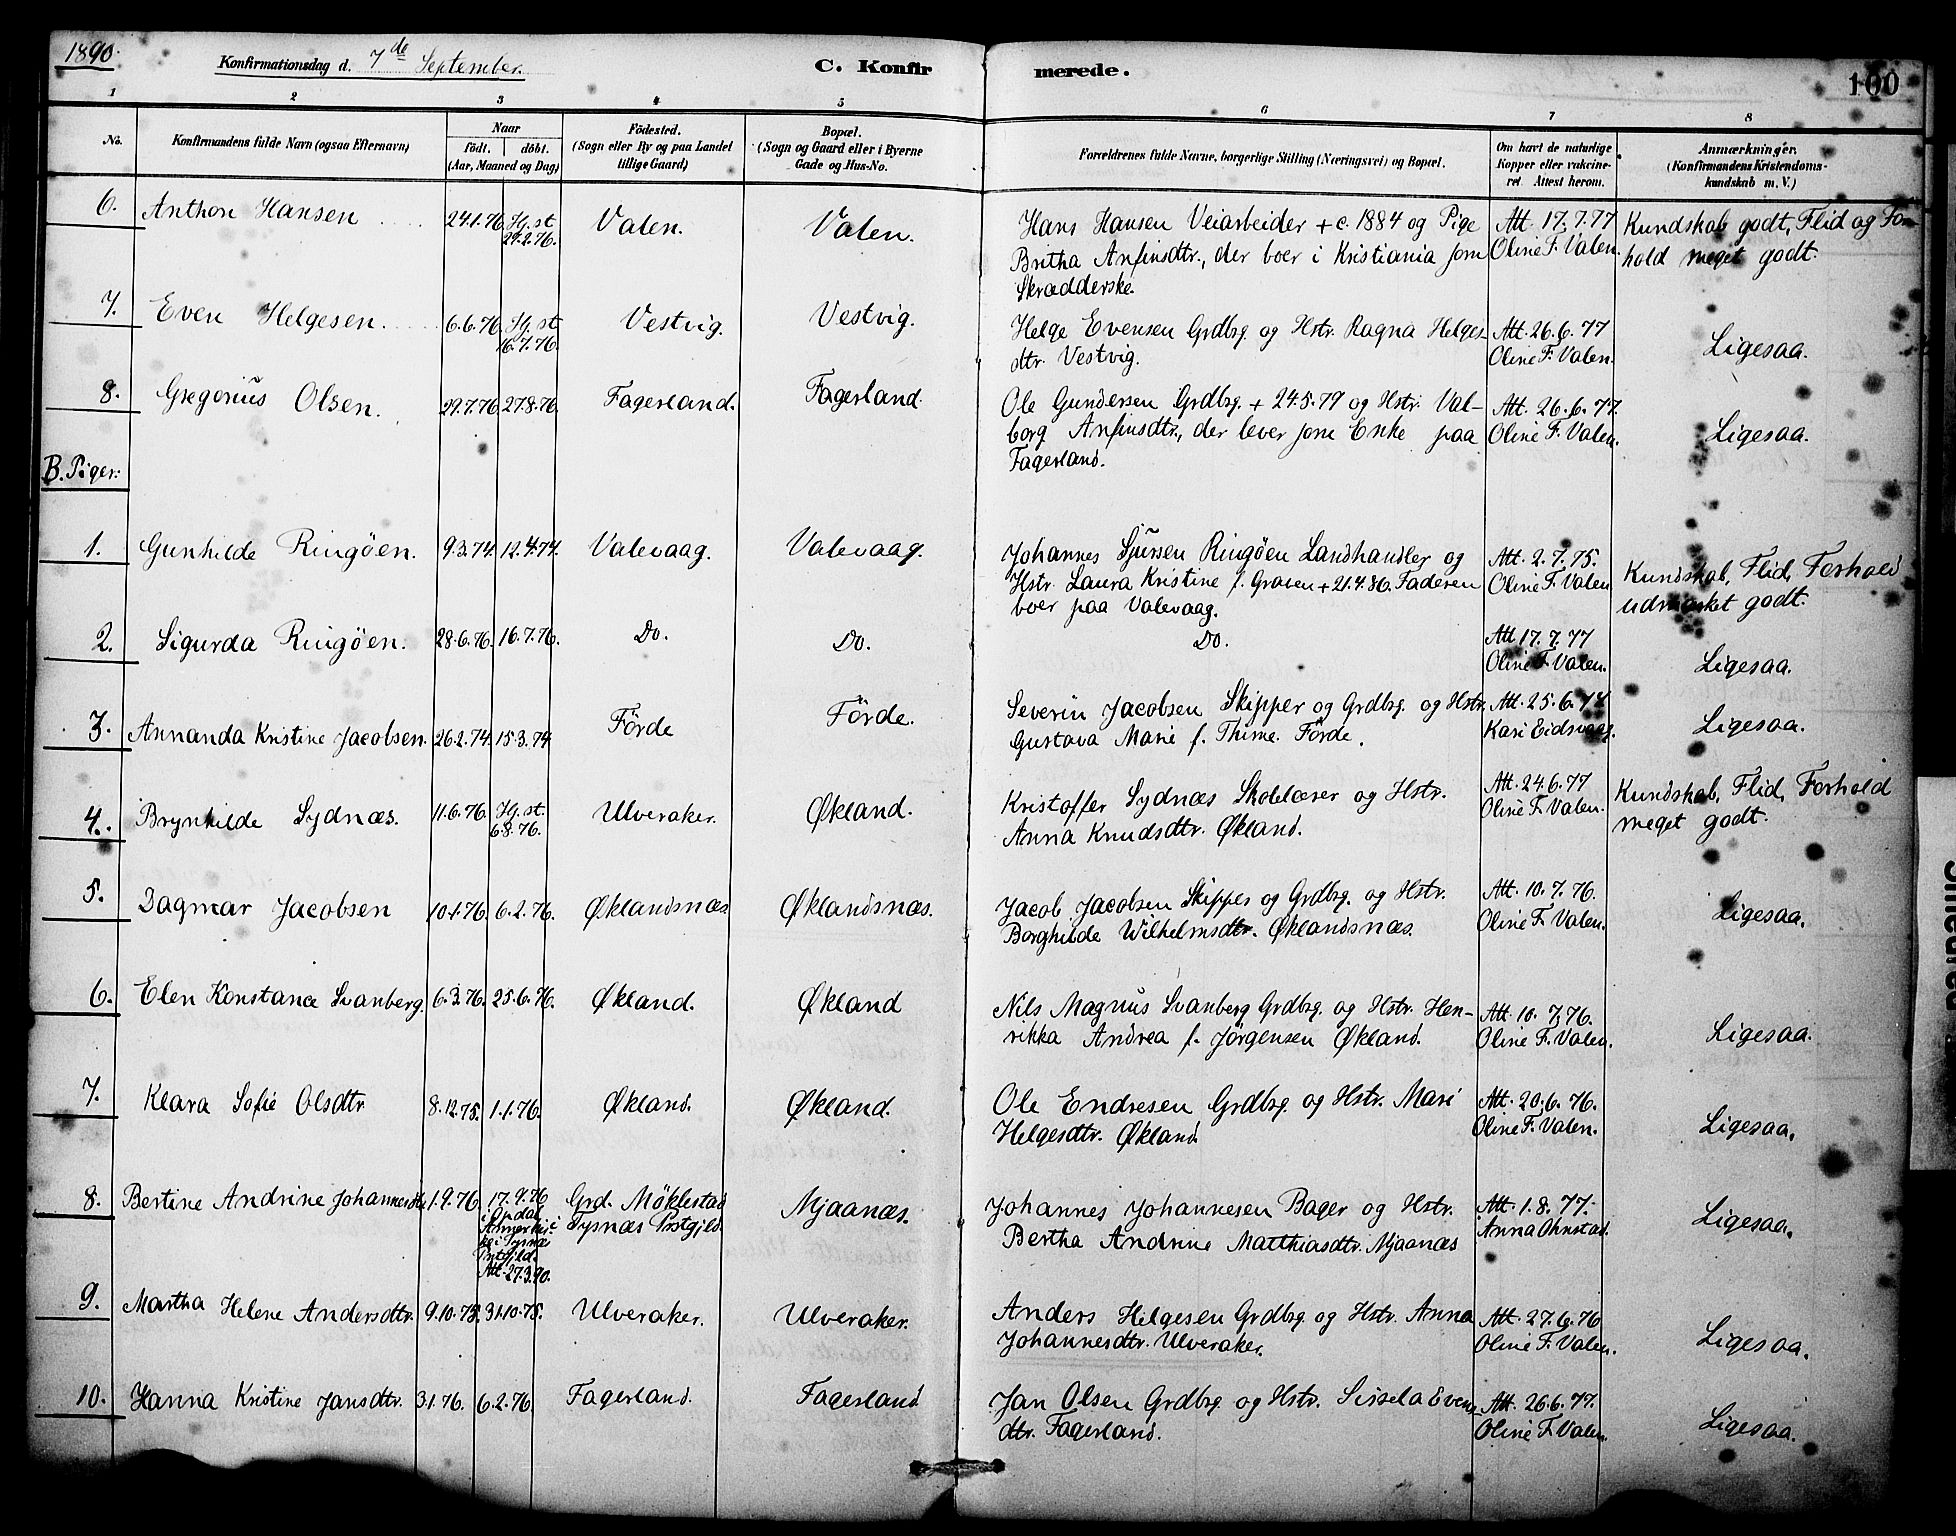 1890.
Konfirmationsdag d. 7de September.
C. Konfirmerede.
100
1 2 3 4 5 6 7 8
No.
Konfirmandens fulde Navn (ogsaa Efternavn)
Naar
födt. döbt.
(Aar, Maaned og Dag)
Födested.
(Sogn eller By og paa Landet
tillige Gaard)
Bopæl.
(Sogn og Gaard eller i Byerne
Gade og Hus-No.
Forældrenes fulde Navne, borgerlige Stilling (Næringsvei) og Bopæl.
Om havt de naturlige
Kopper eller vakcine-
ret. Attest herom.
Anmærkninger.
(Konfirmandens Kristendoms-
kundskab m. V.)
6. Anthon Hansen 24.1.76 Hj. st 27.2.76. Valen. Valen.
Hans Hansen Veiarbeider + c. 1884 og Pige
Britha Anfinsdtr., der boer i Kristiania som
Skrædderske.
Att. 17.7.77
Oline F. Valen.
Kundskab godt, Flid og For-
hold meget godt.
7. Even Helgesen. 6.6.76. Hj. st 16.7.76. Vestvig. Vestvig.
Helge Evensen Grdbrg. og Hstr. Ragna Helges-
dtr. Vestvig.
Att. 26.6.77
Oline F. Valen.
Ligesaa.
8. Gregorius Olsen. 29.7.76. 27.8.76. Fagerland. Fagerland.
Ole Gundersen Grdbrg. + 24.5.79 og Hstr. Val-
borg Anfinsdtr., der lever som Enke paa
Fagerland.
Att. 26.6.77.
Oline F. Valen.
Ligesaa.
B. Piger:
1. Gunhilde Ringöen. 9.3.74. 12.4.74. Valevaag. Valevaag.
Johannes Sjursen Ringöen Landhandler og
Hstr. Laura Kristine f. Graven + 21.4.86. Faderen
boer paa Valevaag.
Att. 2.7.75.
Oline F. Valen
Kundskab, Flid, Forhold
udmærket godt.
2. Sigurda Ringöen. 28.6.76. 16.7.76. Do. Do. Do.
Att 17.7.77
Oline F. Valen.
Ligesaa.
3. Annanda Kristine Jacobsen. 26.2.74. 15.3.74 Förde Förde.
Severin Jacobsen Skipper og Grdbrg. og Hstr.
Gustava Marie f. Thime. Förde.
Att. 25.6.
Kari Eidsvaag.
Ligesaa.
4. Brynhilde Sydnæs. 11.6.76. Hj. st. 6.8.76. Ulveraker. Økland.
Kristoffer Sydnæs Skolelærer og Hstr.
Anna Knudsdtr. Økland.
Att. 24.6.77
Oline F. Valen.
Kundskab, Flid, Forhold
meget godt.
5. Dagmar Jacobsen 10.1.76. 6.2.76. Øklandsnæs Øklandsnæs.
Jacob Jacobsen Skipper og Grdbrg. og Hstr.
Borghilde Wilhelmsdtr. Øklandsnæs.
Att. 10.7.76.
Oline F. Valen.
Ligesaa.
6. Elen Konstance Svanberg. 6.3.76. 25.6.76. Økland. Økland
Nils Magnus Svanberg Grdbrg. og Hstr. Hen-
rikka Andrea f. Jörgensen Økland.
Att. 10.7.76.
Oline F. Valen.
Ligesaa.
7. Klara Sofie Olsdtr 8.12.75. 1.1.76. Økland. Økland.
Ole Endresen Grdbrg. og Hstr. Mari
Helgesdtr. Økland.
Att. 20.6.76.
Oline F. Valen.
Ligesaa.
8. Bertine Andrine Johannesdtr 1.9.76. 17.9.76
i Opdal
i Tysnæs
Prstgjld.
Att. 27.3.90.
Grd. Möklestad
Tysnæs Prstgjld.
Mjaanæs.
Johannes Johannesen Bager og Hstr.
Bertha Andrine Matthiasdtr. Mjaanæs
Att. 1.8.77.
Anna Ohnstad.
Ligesaa.
9. Martha Helene Andersdtr. 9.10.75. 31.10.75. Ulveraker. Ulveraker.
Anders Helgesen Grdbrg. og Hstr. Anna
Johannesdtr. Ulveraker.
Att. 27.6.76
Oline F. Valen.
Ligesaa.
10. Hanna Kristine Jansdtr. 3.1.76. 6.2.76 Fagerland. Fagerland
Jan Olsen Grdbrg. og Hstr. Sissela Evens-
dtr. Fagerland.
Att. 26.6.77.
Oline F. Valen.
Ligesaa.